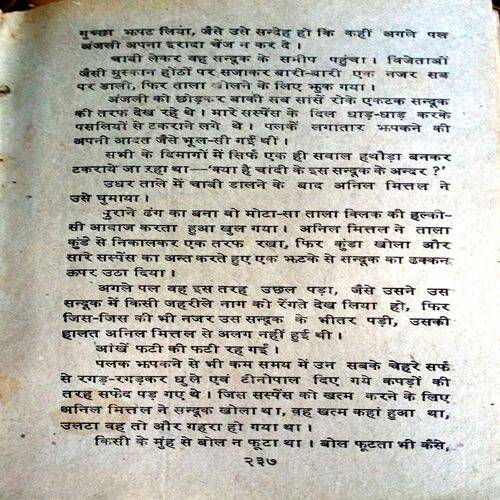 गुच्छा झपट लिया, जैसे उसे सन्देह हो कि कहीं अगले पल
अंजली अपना इरादा चेंज न कर दे ।
चाबी लेकर वह सन्दूक के समीप पहुंचा । विजेताओं
जैसी मुस्कान होंठों पर सजाकर बारी-बारी एक नजर सब
पर डाली, फिर ताला खोलने के लिए झुक गया ।
अंजली को छोड़कर बाकी सब सांसें रोके एकटक सन्दूक
की तरफ देख रहे थे । मारे सस्पेंस के दिल धाड़-धाड़ करके
पसलियों से टकराने लगे थे । पलकें लगातार झपकने की
अपनी आदत जैसे भूल-सी गई थीं ।
सभी के दिमागों में सिर्फ एक ही सवाल हथौड़ा बनकर
टकराये जा रहा था—'क्या है चांदी के इस सन्दूक के अन्दर ?'
उधर ताले में चाबी डालने के बाद अनिल मित्तल ने
उसे घुमाया ।
पुराने ढंग का बना वो मोटा-सा ताला क्लिक की हल्की-
सी आवाज करता हुआ खुल गया । अनिल मित्तल ने ताला
कुंडे से निकालकर एक तरफ रखा, फिर कुंडा खोला और
सारे सस्पेंस का अन्त करते हुए एक झटके से सन्दूक का ढक्कन
ऊपर उठा दिया ।
अगले पल वह इस तरह उछल पड़ा, जैसे उसने उस
सन्दूक में किसी जहरीले नाग को रेंगते देख लिया हो, फिर
जिस-जिस की भी नजर उस सन्दूक के भीतर पड़ी, उसकी
हालत अनिल मित्तल से अलग नहीं हुई थी ।
आंखें फटी की फटी रह गईं ।
पलक झपकने से भी कम समय में उन सबके चेहरे सर्फ
से रगड़-रगड़कर धुले एवं टीनोपाल दिए गये कपड़ों की
तरह सफेद पड़ गए थे । जिस सस्पेंस को खत्म करने के लिए
अनिल मित्तल ने सन्दूक खोला था, वह खत्म कहां हुआ था,
उलटा वह तो और गहरा हो गया था ।
किसी के मुंह से बोल न फूटा था । बोल फूटता भी कैसे,
२३७